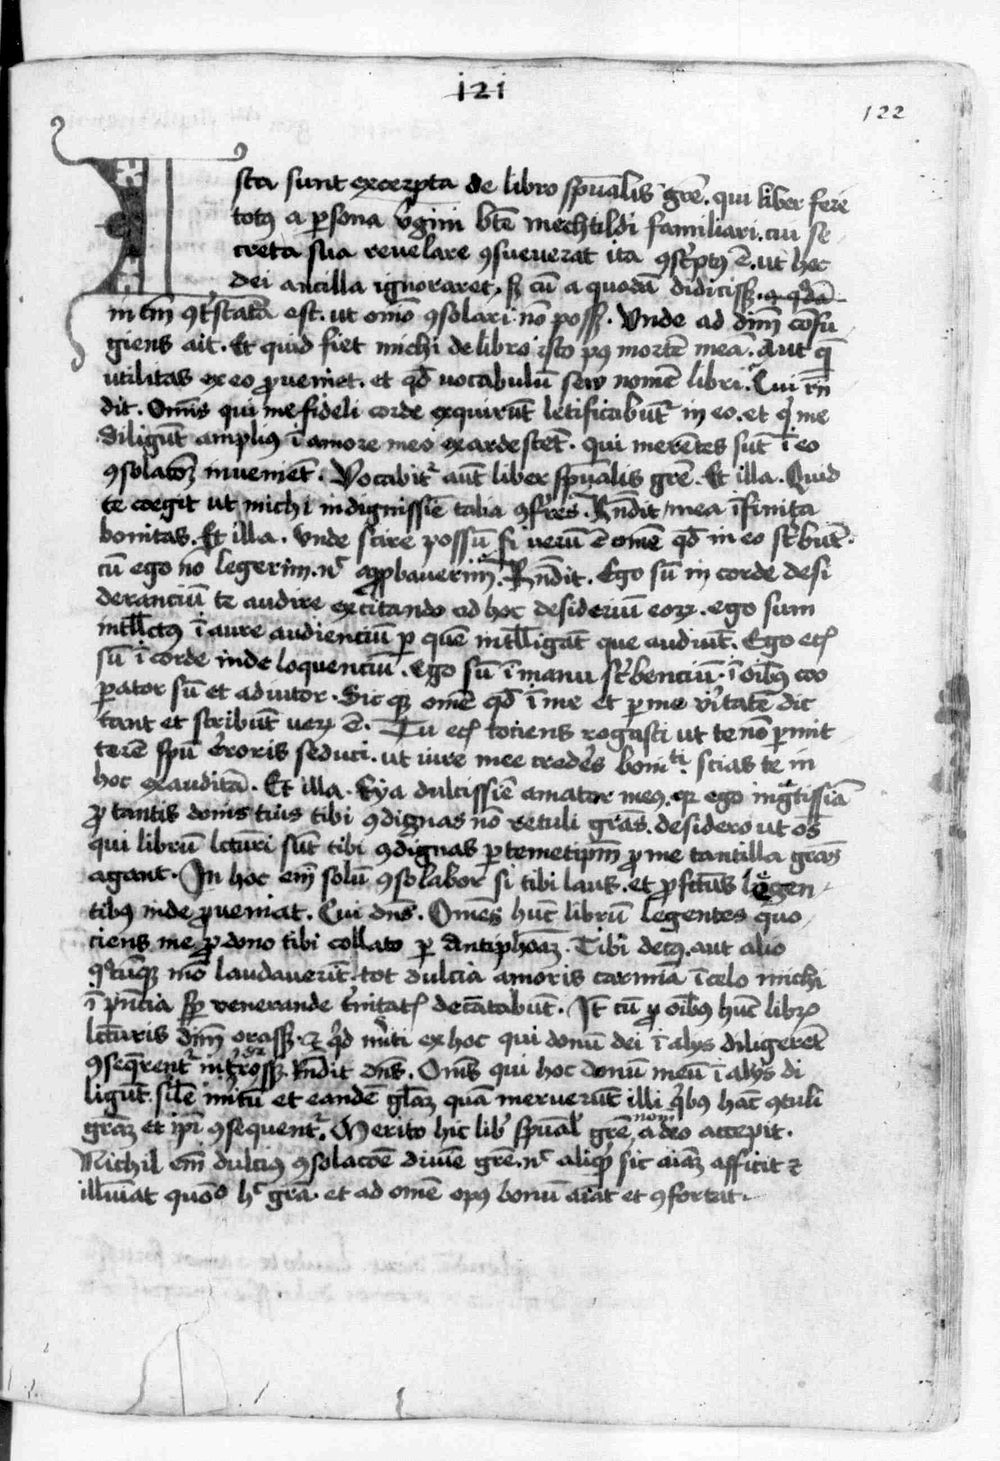 121
122
Ista sunt excerpta de libro spūalis grē. qui liber fere
totꝯ a ꝑsona v̓gini btē mechtildi familiari. cui se
creta sua revelare ꝯsueverat ita ꝯsc̓ptꝯ ē. ut hoc
dei ancilla ignoraret. sꝫ cū a quodā didicissꝫ
in tm̄ ꝯt̓stata est. ut omō ꝯsolari nō possꝫ. Vnde ad dn̄m cōfu
giens ait. Et quid fiet michi de libro isto pꝯ mortē meā. Aut q̄
utilitas ex eo ꝓveniet. et qd̄ vocabulū seu nomē libri. Cui rn̄
dit. Om̄s qui me fideli corde exquirūt letificabūt᷑ in eo. et qⁱ me
diligūt ampliꝯ ī amore meo exardescēt. qui merētes sūt ī eo
ꝯsolatōꝫ inveniēt. Vocabit᷑ aūt liber spūalis grē. Et illa. Quid
te coegit ut michi indignissīe talia ꝯfrēs. Rn̄dit mea īfinita
bonitas. Et illa. Vnde scire possū si verū ē omē qd̄ in eo sc̓būt.
cū ego nō legerim. nͨ apꝓbaverim. Rn̄dit. Ego sū in corde desi
deranciū te audire excitando ad hoc desideriū eoꝝ. ego sum
intll̄ctꝯ ī aure audienciū ꝑ quē intll̄igāt que audiūt. Ego ecꝭ
sū ī corde inde loquenciū. Ego sū ī manu sc̓benciū. ī oīb̄ꝯ coo
ꝑator sū et adiutor. Sic qꝫ omē qd̄ ī me et ꝑ me v̓itatē dic
tant et scribūt veꝝ ē. Tu ecꝭ tociens rogasti ut te nō ꝑmit
terē spū erroris seduci. ut iure mee credēs bonitⁱ. scias te in
hoc exauditā. Et illa. Eya dulcissīe amator meꝯ. qꝛ ego ingͣtissīa
ꝓ tantis donis tuis tibi ꝯdignas nō retuli grās. desidero ut oēs
qui librū lcturi sūt tibi ꝯdignas ꝑ temetipm̄ ꝓ me tantilla grās
agant. In hoc em̄ solū ꝯsolabor si tibi laus. et ꝓfctūs legen
tibꝯ inde ꝓveniat. Cui dn̄s. Omēs hūc librū legentes quo
ciens me ꝓ dono tibi collato ꝑ Antiphōaꝫ. Tibi decꝯ. aut alio
qͦcūqꝫ mō laudaverūt. tot dulcia amoris carmīa ī celo michi
ī p̓ncia sꝑ venerande t̓nitatꝭ decātabūt. Itē cū ꝓ oīb̄ꝯ hūc librꝭ
lcturis dn̄m orassꝫ. et qⁱd m̓iti ex hoc qui donū dei ī alijs diligerēt
ꝯseq̄rent᷑ int̓rogossꝫ. Rn̄dit dn̄s. Om̄s qui hoc donū meū ī alijs di
ligūt. sil̄e m̓itū et eandē gl̄aꝫ quā meruerūt illi qⁱbꝯ hāc ꝯtuli
grāꝫ et ip̄i ꝯsequent᷑. Merito hic lib̓ spūal̓ grē nom̄ a deo accepit.
Nichil em̄ dulciꝯ ꝯsolacōe divīe grē. nͨ aliqⁱd sic aīaꝫ afficit et
illuīat quō hͨ grā. et ad omē opꝯ bonū aīat et ꝯfortat.